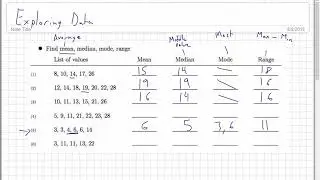 Exploring Data
Note Title
6/2/2015
Average
Middle value
Most
Max - Min
Find mean, median, mode, range
List of values Mean Median Mode Range
(1) 8, 10, 14, 17, 26 15 14 \ 18
(2) 12, 14, 18, 19, 20, 22, 28 19 19 \ 16
(3) 10, 11, 13, 15, 21, 26 16 14 \ 16
(4) 5, 9, 11, 21, 22, 23, 28
(5) 3, 3, 4, 6, 6, 14 6 5 3, 6 11
(6) 3, 11, 11, 13, 22